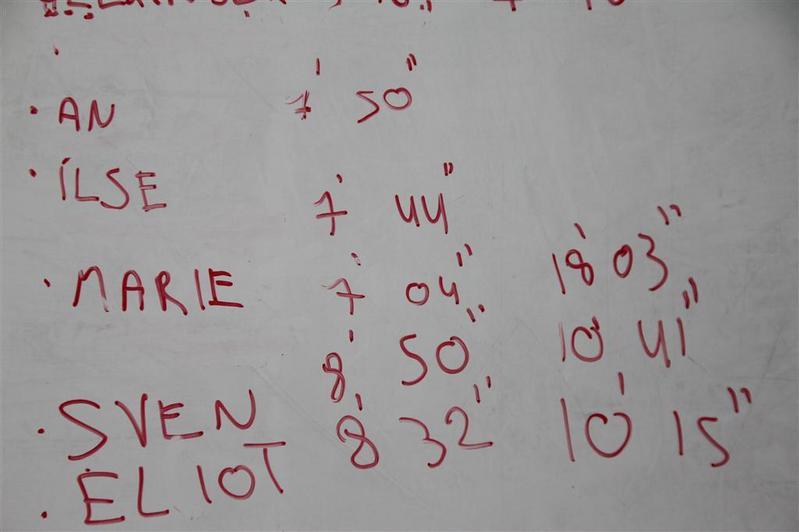 · AN 7' 50"
· ILSE 7' 44"
· MARIE 7' 04" 18' 03"
· SVEN 8' 50" 10' 41"
· ELIOT 8' 32" 10' 15"